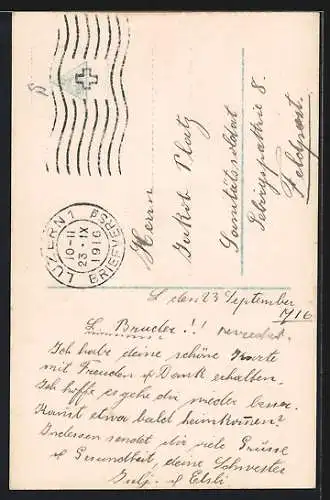 LUZERN 1
10-11
23·IX
1916
BRIEFVERS.
Herrn
Jakob Platz
Sanitätssoldat
Feldpost.
L. den 23 September
1916.
L. Bruder!!
Ich habe deine schöne Karte
mit Freuden & Dank erhalten.
Ich hoffe es gehe dir wieder besser.
Kannst etwa bald heimkommen?
Indessen sendet dir viele Grüsse
& Gesundheit, deine Schwester
& Elsli